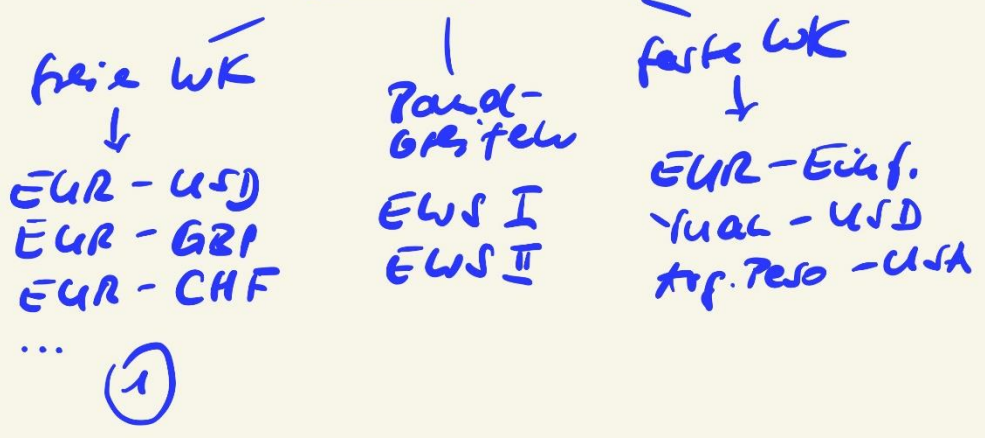 freie WK
EUR - USD
EUR - GBP
EUR - CHF
...
1
Band-
Greifen
EWS I
EWS II
feste WK
EUR - Einf.
Yuan - USD
Arg. Peso - USA